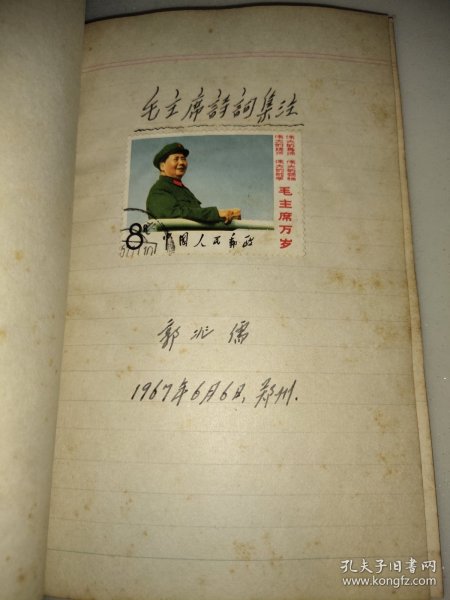 毛主席詩詞集注
伟大的导师
伟大的领袖
伟大的统帅
伟大的舵手
毛主席万岁
8
中国人民邮政
郭兆儒
1967年6月6日,郑州.
孔夫子旧书网
www.kongfz.com